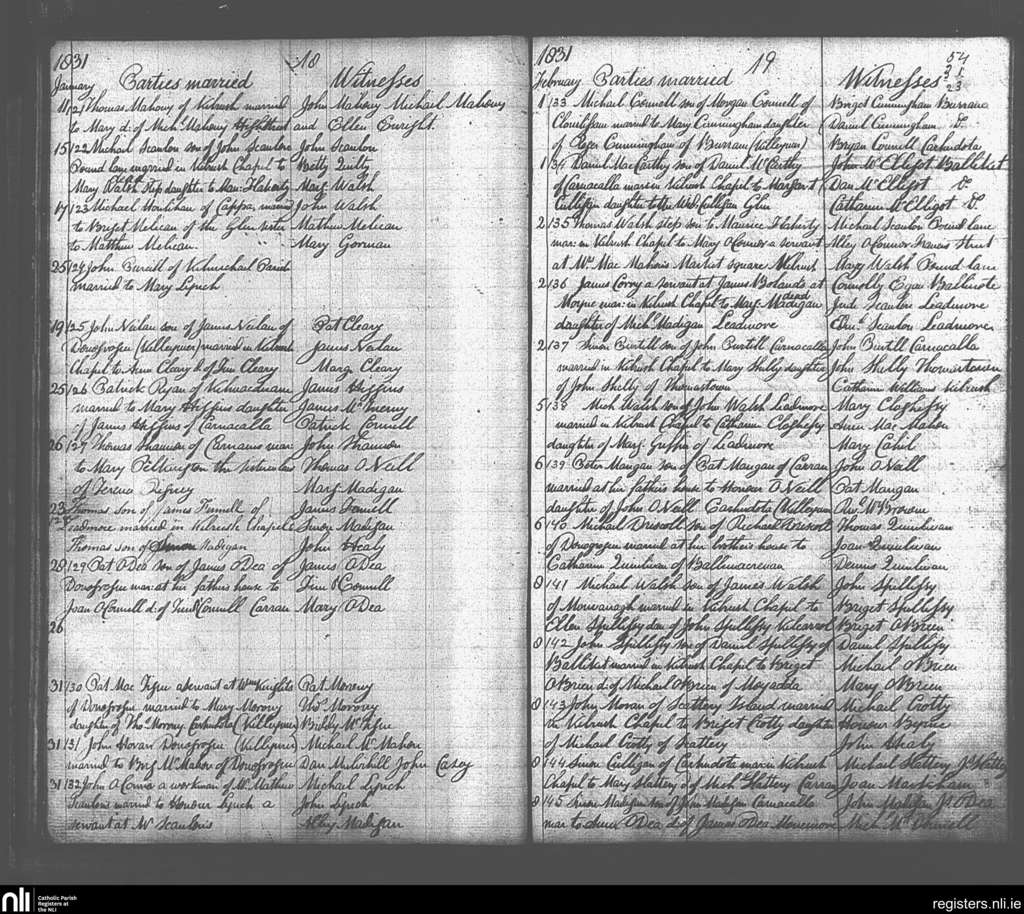 1831
18
January Parties married Witnesses
11/21 Thomas Mahony of Kilrush married John Mahony Michael Mahony
to Mary d. of Michl Mahony and Ellen Enright.
15/22 Michael Scanlon son of John Scanlon John Scanlon
Pound Lane married in Kilrush Chapel to Betty Quilty
Mary Walsh Step daughter to Flaherty Marg Walsh
17/23 Michael Hourihan of Cappa married John Walsh
to Briget Melican of the Glen sister Mathew Melican
to Matthew Melican. Mary Gorman
25/24 John Burill of Kilmichael Parish
married to Mary Lynch
19/25 John Neilan son of James Neilan of Pat Cleary
Donogrogue (Killeymur) married in Kilrush James Neilan
Chapel to Cleary d. of Cleary Marg Cleary
25/26 Patrick Ryan of James Higgins
married to Mary Higgins daughter James McInerny
of James Higgins of Carnacalla Patrick Connell
26/27 Thomas Shannon of Carnauns mar John Shannon
to Mary the Thomas O Neill
of Marg Madigan
23 Thomas son of James Finnell of James Finnell
128 Leadmore married in Kilrush Chapel Simon Madigan
Thomas son of Simon Madigan John Healy
28/29 Pat O Dea son of James O Dea of James O Dea
Donogrogue mar. at his fathers house to Tim O Connell
Joan O Connell d. of Connell Carran Mary O Dea
26
31/30 Pat Mac a servant at Wm Knights Pat Morony
of Donogrogue married to Mary Morony Thos Morony
daughter of Thos Morony Carhudota (Killeymur) Biddy
31/31 John Horan Donogrogue (Killeymur) Michael McMahon
married to Brig McMahon of Donogrogue Dan John Casey
31/32 John a workman of Mr Mathew Michael Lynch
Scanlons married to Honour Lynch a John Lynch
servant at Mr Scanlons Madigan
1831
19
54
2 1
2 23
February Parties married Witnesses
1/33 Michael Connell son of Morgan Connell of Briget Cunningham Burrane
married to Mary Cunningham daughter Daniel Cunningham Do
of Roger Cunningham of Burrane (Killeymur) Bryan Connell Carhudota
1/34 Daniel MacCarthy son of Daniel McCarthy John McElligot Ballikat
of Carnacalla mar in Kilrush Chapel to Margaret Dan McElligot Do
Culligan daughter to the Wid. Culligan Glin Catharine McElligot Do
2/35 Thomas Walsh step son to Maurice Flaherty Michael Scanlon Pound lane
mar. in Kilrush Chapel to Mary O Connor a servant Alley O Connor Francis Street
at Mrs Mac Mahons Market square Kilrush Mary Walsh Pound lane
2/36 James Corry a servant at James Bolands at Connolly Egan Ballinote
Moyne mar. in Kilrush Chapel to Marg. Madigan Jud Scanlon Leadmore
daughter of Michl Madigan dead Leadmore Scanlon Leadmore
2/37 Simon Burtill son of John Burtill Carnacalla John Burtill Carnacalla
married in Kilrush Chapel to Mary Shelly daughter John Shelly Thomastown
of John Shelly of Thomastown Catharine Williams Kilrush
5/38 Mich Walsh son of John Walsh Leadmore Mary Cloghesy
married in Kilrush Chapel to Catharine Cloghessy Mac Mahon
daughter of Marg. Griffin of Leadmore Mary Cahil
6/39 Peter Mangan son of Pat Mangan of Carran John O Neill
married at his fathers house to Honour O Neill Pat Mangan
daughter of John O Neill Carhudota (Killeymur) Revd
6/40 Michael Driscoll son of Richard Driscoll Thomas Quinlivan
of Donogrogue married at her brothers house to Joan Quinlivan
Catharine Quinlivan of Dennis Quinlivan
8/41 Michael Walsh son of James Walsh John Spellissy
of Monvanagh married in Kilrush Chapel to Briget Spellissy
Ellen Spellissy dau of John Spellissy Kilcarrol Briget O Brien
8/42 John Spellissy son of Daniel Spellissy of Daniel Spellissy
Ballikat married in Kilrush Chapel to Briget Michael O Brien
O Brien d. of Michael O Brien of Moyadda Mary O Brien
8/43 John Moran of Scattery Island married Michael Crotty
in Kilrush Chapel to Briget Crotty daughter Honour
of Michael Crotty of Scattery John Healy
8/44 Simon Culligan of Carhudota mar in Kilrush Michael Slattery Jas Slattery
Chapel to Mary Slattery d of Mich Slattery Carran Joan
8/45 Simon Madigan son of John Madigan Carnacalla John Madigan Js O Dea
mar to O Dea d. of James O Dea Monemore Mich
nli
Catholic Parish
Registers at
the NLI
registers.nli.ie